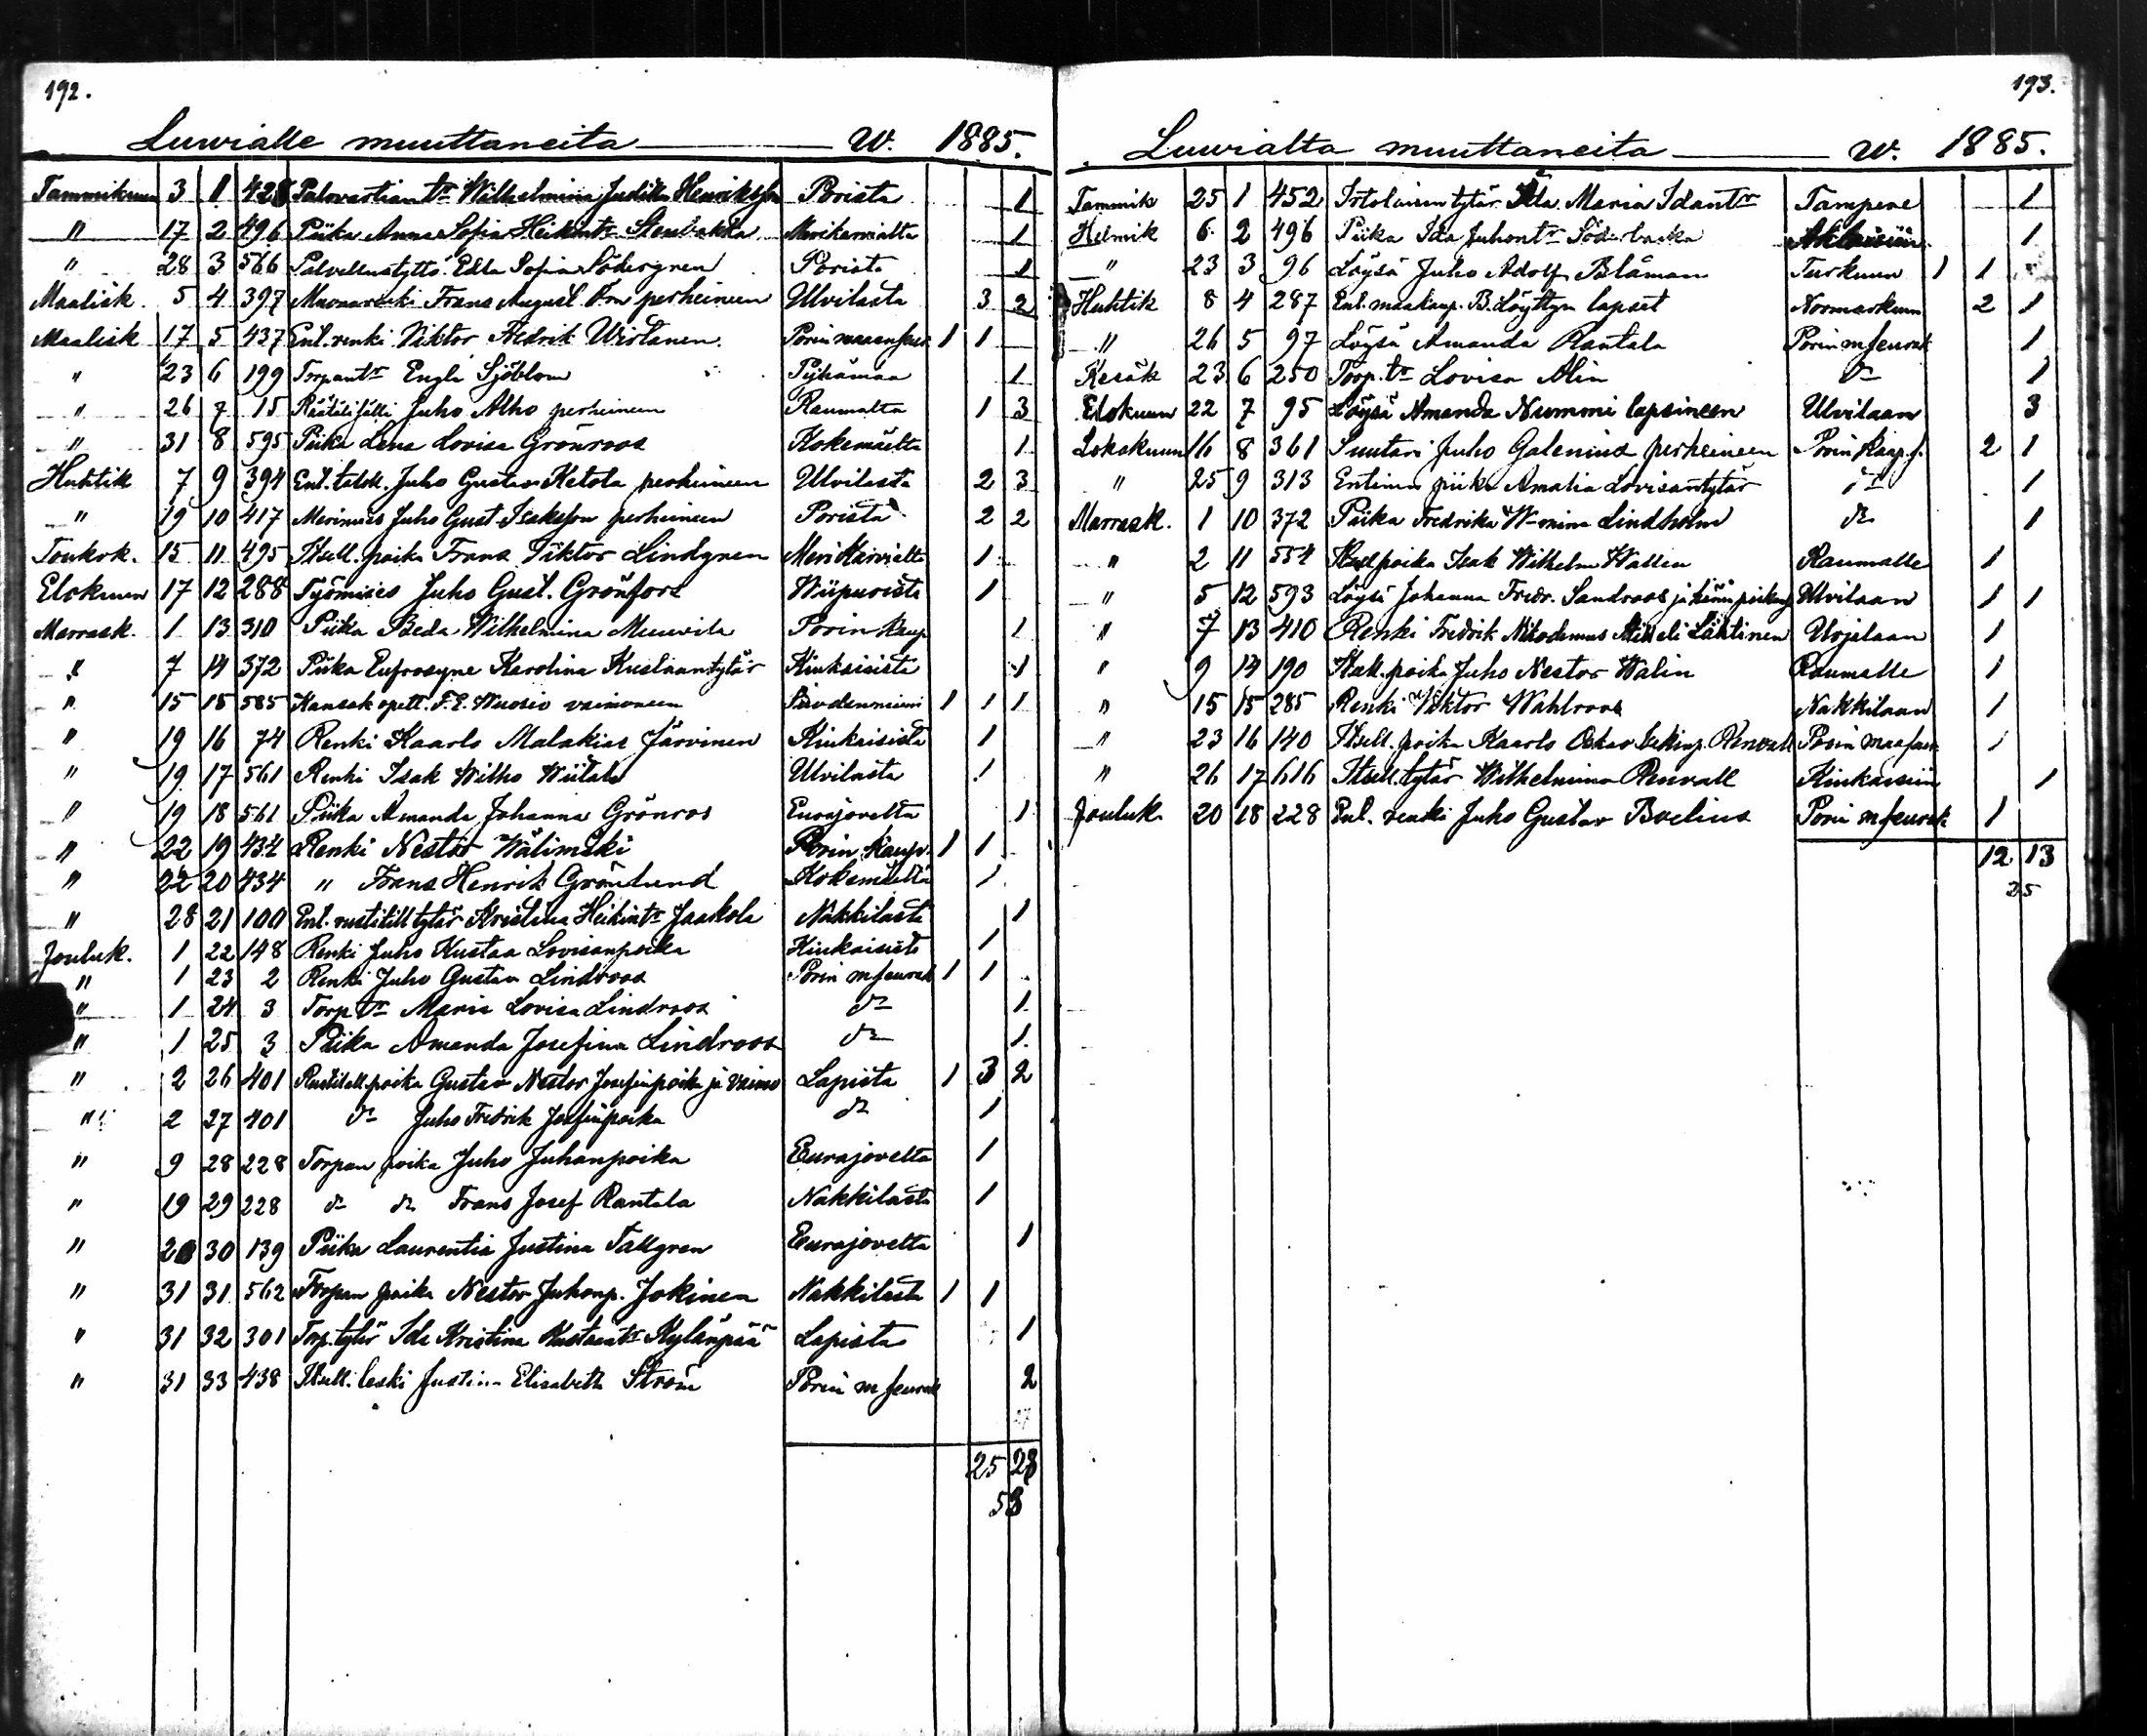 192.
Luwialle muuttaneita W. 1885.
Tammikuun 3 1 428 Palovartian tr Wilhelmina Judika Henriksson Porista 1
" 17 2 496 Piika Anna Sofia Heikintr Stenbakka Merikarvialta 1
" 28 3 566 Palvellustyttö Edla Sofia Södergren Porista 1
Maalisk. 5 4 397 Frans August perheineen Ulvilasta 3 2
Maalisk 17 5 437 Ent. renki Viktor Fredrik Wirtanen Porin maaseur 1 1
" 23 6 199 Torpantr Engla Sjöblom Pyhämaa 1
" 26 7 15 Räätäli Juho Alho perheineen Raumalta 1 3
" 31 8 595 Piika Lena Lovisa Grönroos Kokemäelta 1
Huhtik 7 9 394 Ent. talok. Juho Gustav Ketola perheineen Ulvilasta 2 3
" 19 10 417 Merimies Juho Gust. Isaksson perheineen Porista 2 2
Toukok. 15 11 495 Itsell. poika Frans Viktor Lindgren Merikarvialta 1
Elokuun 17 12 288 Työmies Juho Gust. Grönfors Wiipurista 1
Marrask. 1 13 310 Piika Beda Wilhelmina Muuvila Porin kaup 1
" 7 14 372 Piika Eufrosyne Karolina Kustaantytär Kiukaisista 1
" 15 15 585 Kansak. opett. F. E. Wuorio vaimoneen 1 1 1
" 19 16 74 Renki Kaarlo Malakias Järvinen Kiukaisista 1
" 19 17 561 Renki Isak Wilho Wiitala Ulvilasta 1
" 19 18 561 Piika Amanda Johanna Grönros Eurajoelta 1
" 22 19 434 Renki Nestor Wälimäki Porin Kaup. 1 1
" 22 20 434 " Frans Henrik Grönlund Kokemäeltä 1
" 28 21 100 Ent. rustitill tytär Kristina Heikintr Jaakola Nakkilasta 1
Jouluk. 1 22 148 Renki Juho Kustaa Lovisanpoika Kiukaisista 1
" 1 23 2 Renki Juho Gustav Lindroos Porin mseurak 1 1
" 1 24 3 Torp. tr Maria Lovisa Lindroos do 1
" 1 25 3 Piika Amanda Josefina Lindroos do 1
" 2 26 401 Rustitill. poika Gustav Nestor Josefinpoika ja vaimo Lapista 1 3 2
" 2 27 401 do Juho Fredrik Josefinpoika do 1
" 9 28 228 Torpan poika Juho Juhanpoika Eurajovelta 1
" 19 29 228 do do Frans Josef Rantala Nakkilasta 1
" 20 30 139 Piika Laurentia Justina Tallgren Eurajovelta 1
" 31 31 562 Torpan poika Nestor Juhonp. Jokinen Nakkilasta 1 1
" 31 32 301 Torp. tytär Ida Kristina Kustaantr Kylänpää Lapista 1
" 31 33 438 Itsell. leski Justina Elisabeth Ström Porin m seurak 2
25 28
53
193.
Luwialta muuttaneita W. 1885.
Tammik 25 1 452 Irtolaisen tytär Ida Maria Idantr Tampere 1
Helmik 6 2 496 Piika Ida Juhontr Söderbacka 1
" 23 3 96 Löysä Juho Adolf Blåman Turkuun 1 1
Huhtik 8 4 287 Ent. maakaup. B. Löyttyn lapset Normarkuun 2 1
" 26 5 97 Löysä Amanda Rantala Porin mseurak 1
Kesäk 23 6 250 Torp. tr Lovisa Alin do 1
Elokuun 22 7 95 Löysä Amanda Nummi lapsineen Ulvilaan 3
Lokakuun 16 8 361 Suutari Juho Galenius perheineen Porin Kaup. s. 2 1
" 25 9 313 Entinen piika Amalia Lovisantytär do 1
Marrask. 1 10 372 Piika Fredrika W-mina Lindholm do 1
" 2 11 554 Itsell poika Isak Wilhelm Wallin Raumalle 1
" 5 12 593 Löysä Johanna Fredr. Sandroos ja hänen poikansa Ulvilaan 1 1
" 7 13 410 Renki Fredrik Nikodemus Lähtinen Urjalaan 1
" 9 14 190 Itsell. poika Juho Nestor Walin Raumalle 1
" 15 15 285 Renki Viktor Wahlroos Nakkilaan 1
" 23 16 140 Itsell. poika Kaarlo Oskar Renvall Porin maaseur 1
" 26 17 616 Itsell. tytär Wilhelmina Renvall Kiukaisiin 1
Jouluk. 20 18 228 Ent. renki Juho Gustav Boelius Porin mseurak 1
12 13
25